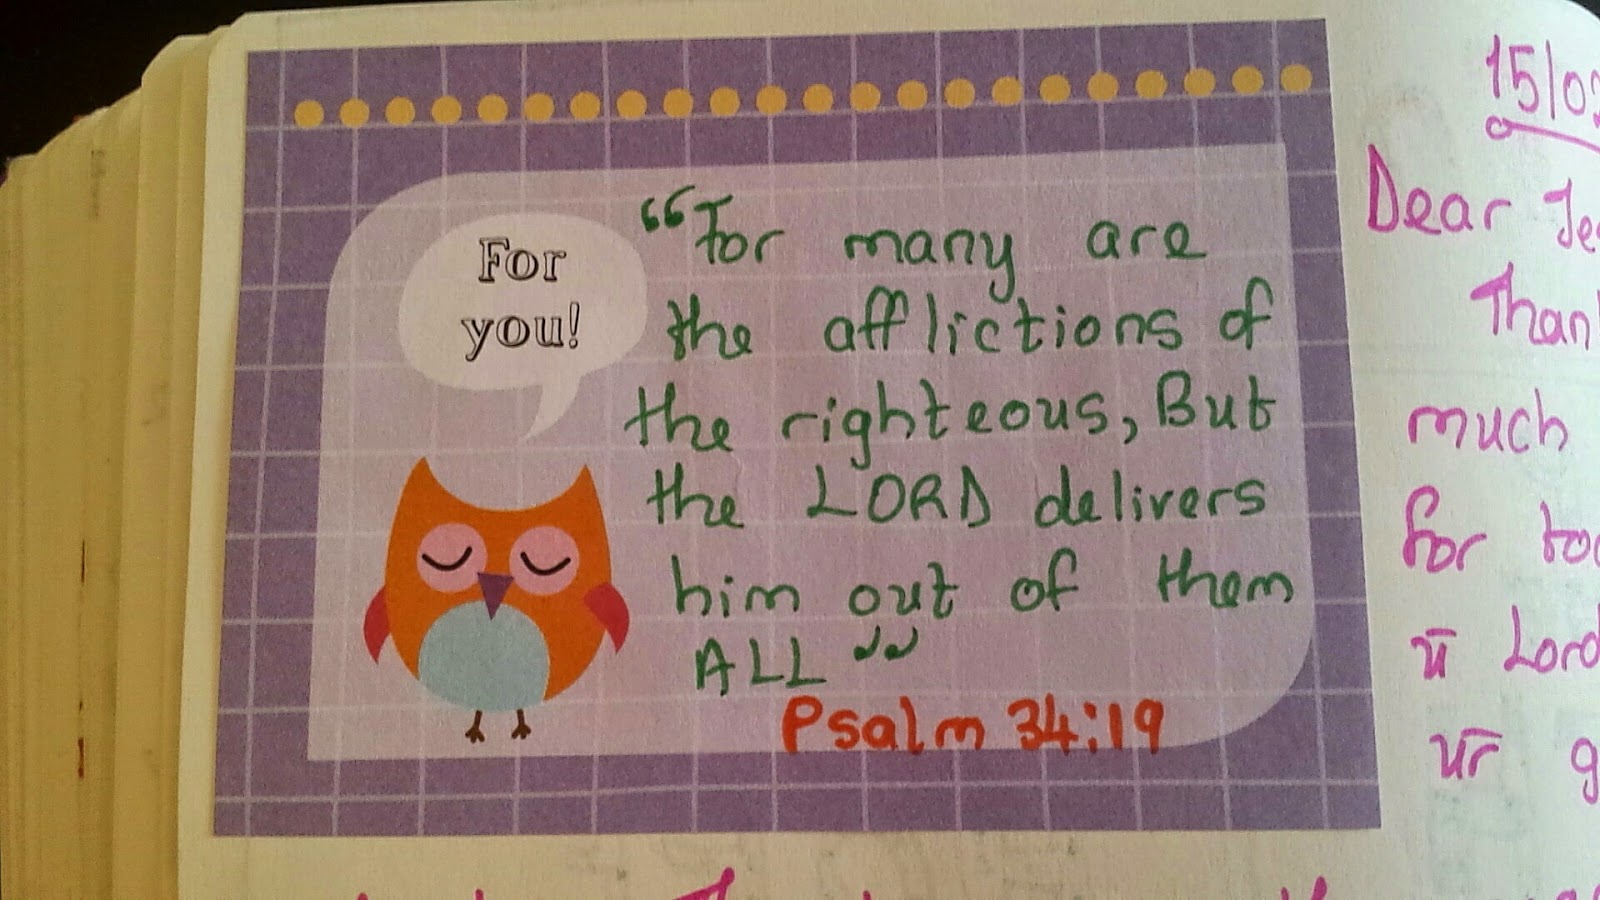 For
you!
“For many are
the afflictions of
the righteous, But
the LORD delivers
him out of them
ALL”
Psalm 34:19
15/0
Dear Je
Than
much
for
Lord